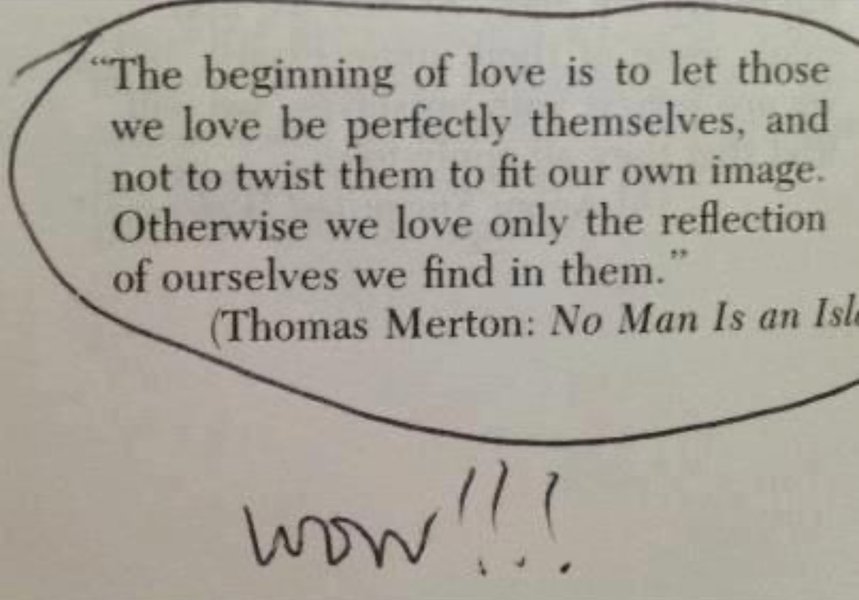 “The beginning of love is to let those
we love be perfectly themselves, and
not to twist them to fit our own image.
Otherwise we love only the reflection
of ourselves we find in them.”
(Thomas Merton: No Man Is an
wow!!!